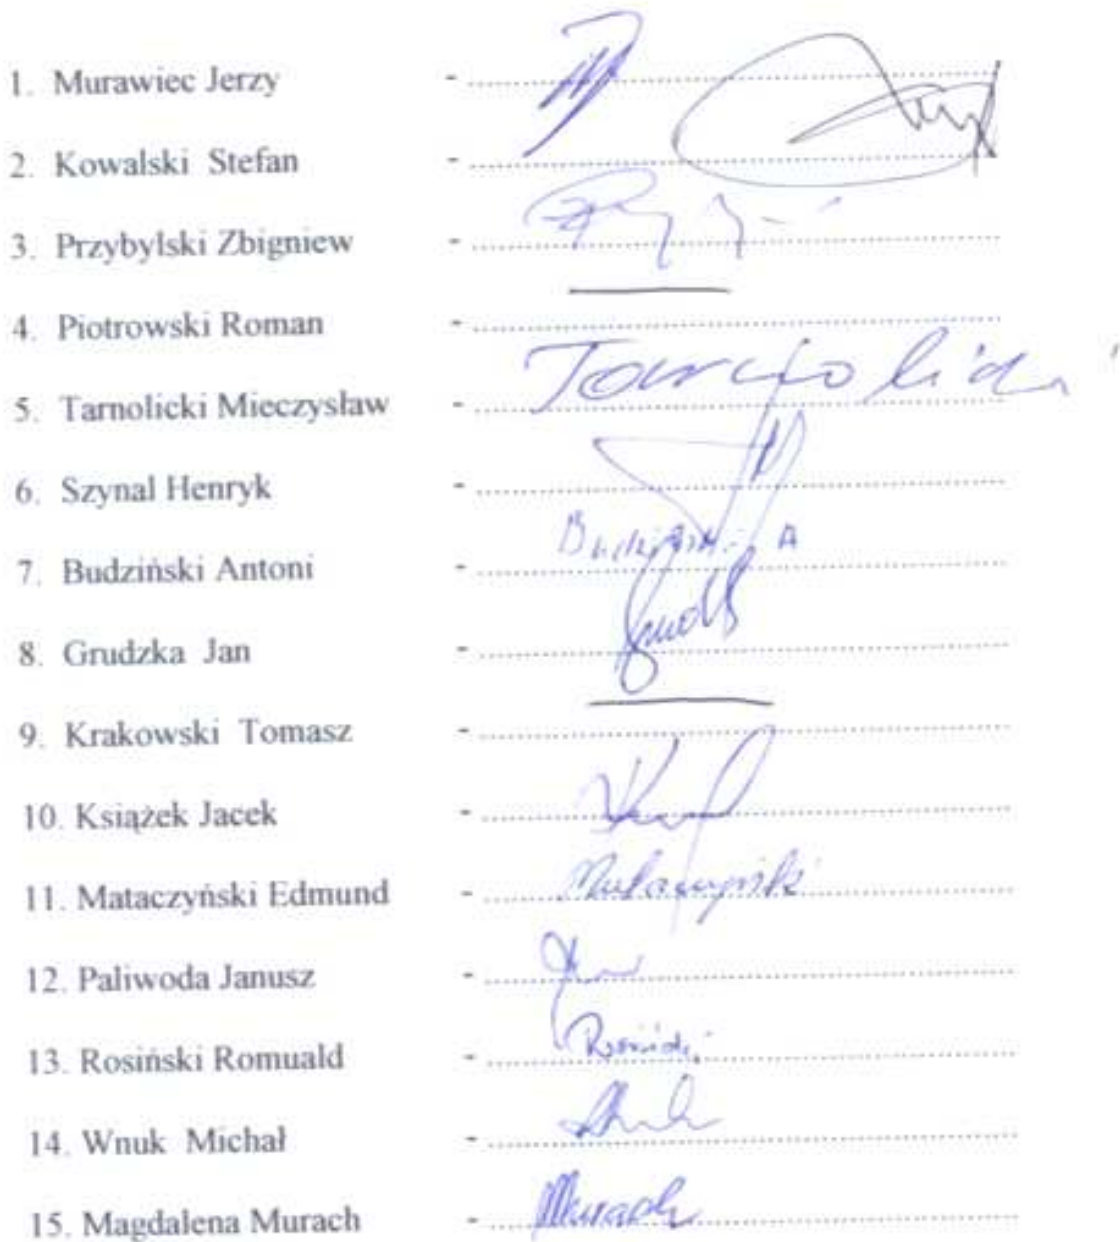 1. Murawiec Jerzy - ..........
2. Kowalski Stefan - ..........
3. Przybylski Zbigniew - ..........
4. Piotrowski Roman - ..........
5. Tarnolicki Mieczysław - ..........
6. Szynal Henryk - ..........
Budziński A
7. Budziński Antoni - ..........
8. Grudzka Jan - ..........
9. Krakowski Tomasz - ..........
10. Książek Jacek - ..........
11. Mataczyński Edmund - .......... Mataczyński
12. Paliwoda Janusz - ..........
13. Rosiński Romuald - .......... Rosiński
14. Wnuk Michał - ..........
15. Magdalena Murach - .......... Murach